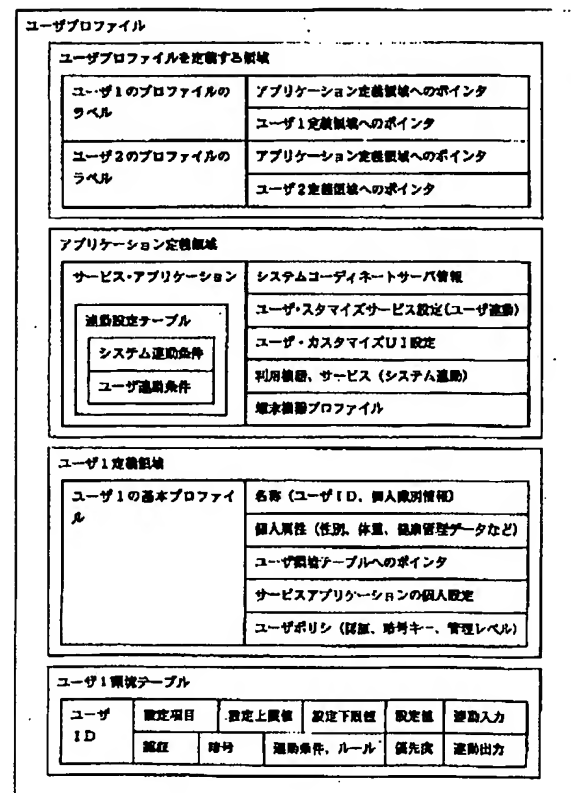 ユーザプロファイル
ユーザプロファイルを定義する領域
ユーザ1のプロファイルの
ラベル
アプリケーション定義領域へのポインタ
ユーザ1定義領域へのポインタ
ユーザ2のプロファイルの
ラベル
アプリケーション定義領域へのポインタ
ユーザ2定義領域へのポインタ
アプリケーション定義領域
サービス・アプリケーション
連動設定テーブル
システム連動条件
ユーザ連動条件
システムコーディネートサーバ情報
ユーザ・スタマイズサービス設定(ユーザ連動)
ユーザ・カスタマイズUI設定
利用機器、サービス(システム連動)
端末機器プロファイル
ユーザ1定義領域
ユーザ1の基本プロファイ
ル
名称(ユーザID、個人識別情報)
個人属性(性別、体重、健康管理データなど)
ユーザ環境テーブルへのポインタ
サービスアプリケーションの個人設定
ユーザポリシ(認証、暗号キー、管理レベル)
ユーザ1環境テーブル
ユーザ
ID
設定項目 設定上限値 設定下限値 設定値 連動入力
認証 暗号 連動条件、ルール 優先度 連動出力